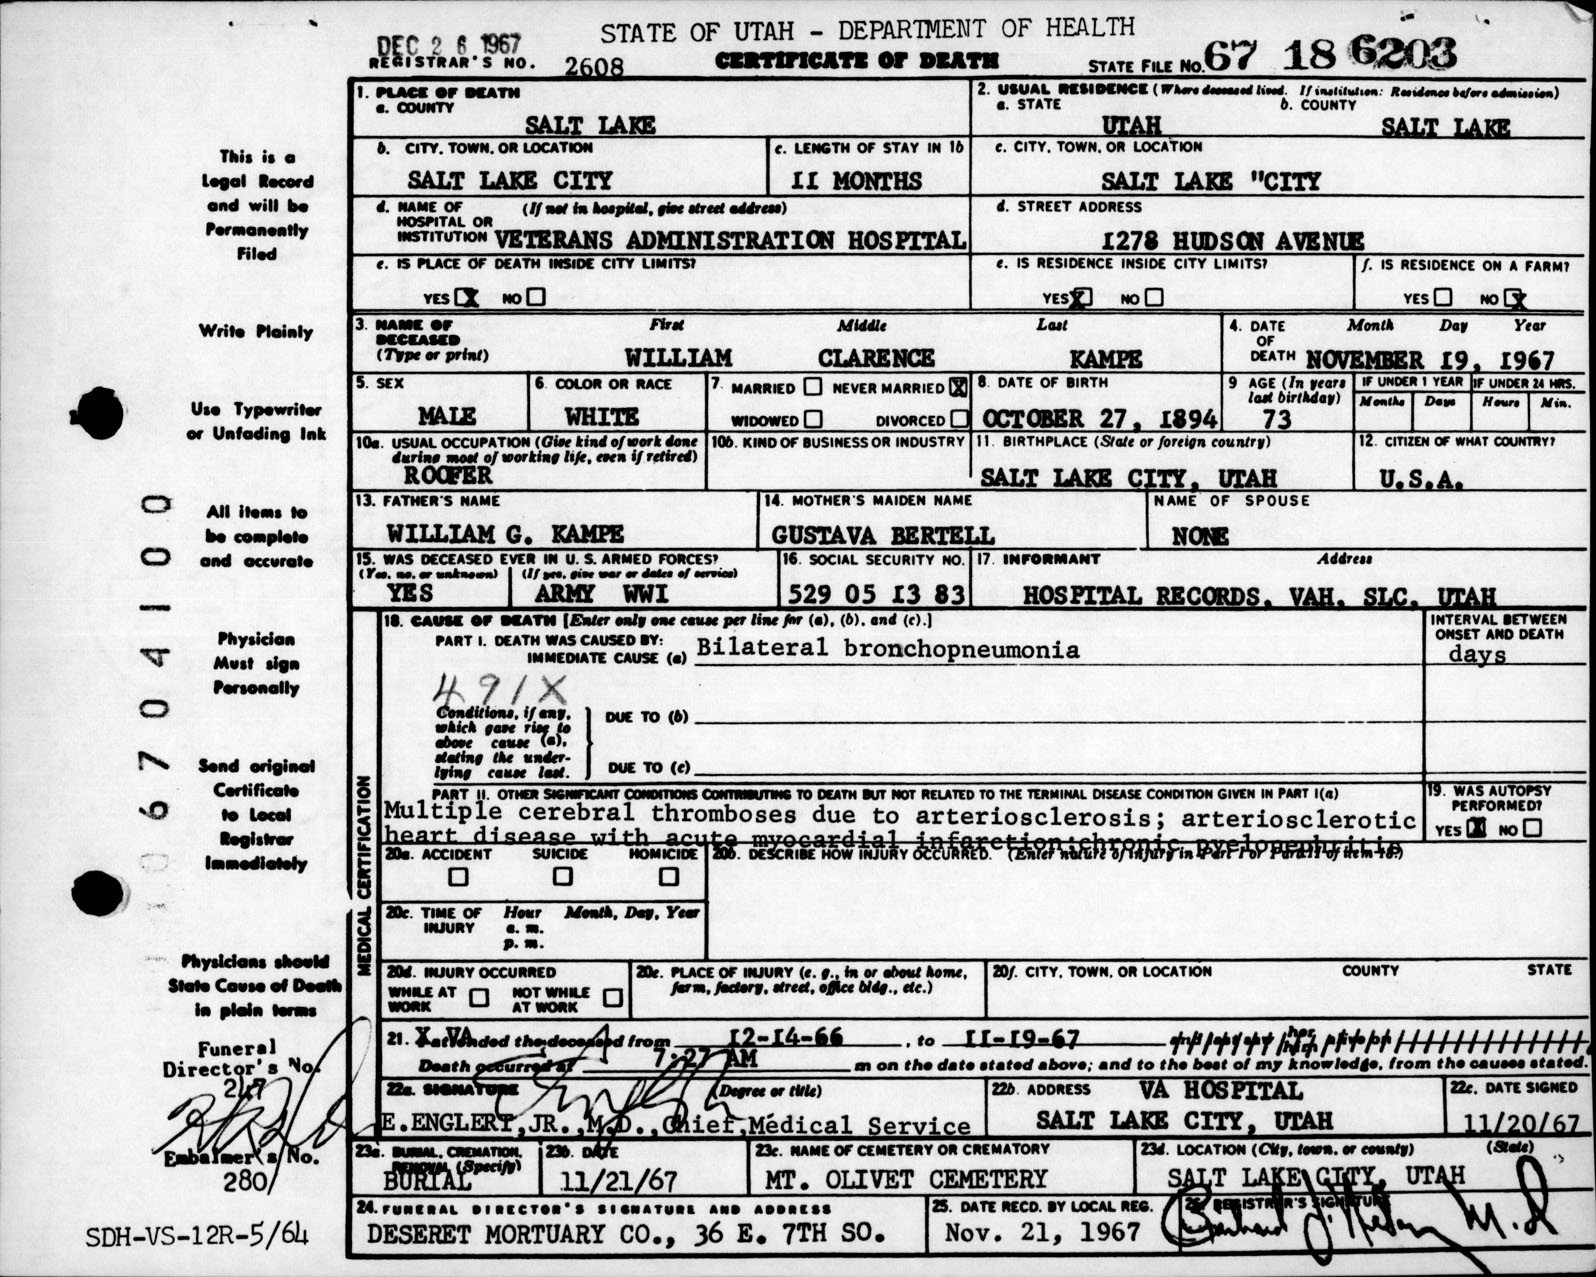 STATE OF UTAH - DEPARTMENT OF HEALTH
DEC 26 1967
REGISTRAR'S NO. 2608
CERTIFICATE OF DEATH
STATE FILE NO. 67 18 6203
1. PLACE OF DEATH
a. COUNTY
SALT LAKE
2. USUAL RESIDENCE (Where deceased lived. If institution: Residence before admission)
a. STATE b. COUNTY
UTAH SALT LAKE
b. CITY, TOWN, OR LOCATION
SALT LAKE CITY
c. LENGTH OF STAY IN 1b
11 MONTHS
c. CITY, TOWN, OR LOCATION
SALT LAKE "CITY
d. NAME OF HOSPITAL OR INSTITUTION (If not in hospital, give street address)
VETERANS ADMINISTRATION HOSPITAL
d. STREET ADDRESS
1278 HUDSON AVENUE
e. IS PLACE OF DEATH INSIDE CITY LIMITS?
YES X NO
e. IS RESIDENCE INSIDE CITY LIMITS?
YES X NO
f. IS RESIDENCE ON A FARM?
YES NO X
3. NAME OF DECEASED (Type or print)
First Middle Last
WILLIAM CLARENCE KAMPE
4. DATE OF DEATH
Month Day Year
NOVEMBER 19, 1967
5. SEX
MALE
6. COLOR OR RACE
WHITE
7. MARRIED NEVER MARRIED X
WIDOWED DIVORCED
8. DATE OF BIRTH
OCTOBER 27, 1894
9 AGE (In years last birthday)
73
IF UNDER 1 YEAR
Months Days
IF UNDER 24 HRS.
Hours Min.
10a. USUAL OCCUPATION (Give kind of work done during most of working life, even if retired)
ROOFER
10b. KIND OF BUSINESS OR INDUSTRY
11. BIRTHPLACE (State or foreign country)
SALT LAKE CITY, UTAH
12. CITIZEN OF WHAT COUNTRY?
U.S.A.
13. FATHER'S NAME
WILLIAM G. KAMPE
14. MOTHER'S MAIDEN NAME
GUSTAVA BERTELL
NAME OF SPOUSE
NONE
15. WAS DECEASED EVER IN U. S. ARMED FORCES?
(Yes, no, or unknown) (If yes, give war or dates of service)
YES ARMY WWI
16. SOCIAL SECURITY NO.
529 05 13 83
17. INFORMANT Address
HOSPITAL RECORDS, VAH, SLC, UTAH
MEDICAL CERTIFICATION
18. CAUSE OF DEATH [Enter only one cause per line for (a), (b), and (c).]
PART I. DEATH WAS CAUSED BY:
IMMEDIATE CAUSE (a) Bilateral bronchopneumonia
INTERVAL BETWEEN ONSET AND DEATH
days
491X
Conditions, if any, which gave rise to above cause (a), stating the underlying cause last.
DUE TO (b)
DUE TO (c)
PART II. OTHER SIGNIFICANT CONDITIONS CONTRIBUTING TO DEATH BUT NOT RELATED TO THE TERMINAL DISEASE CONDITION GIVEN IN PART I(a)
Multiple cerebral thromboses due to arteriosclerosis; arteriosclerotic
heart disease with acute myocardial infarction;chronic pyelonephritis
19. WAS AUTOPSY PERFORMED?
YES X NO
20a. ACCIDENT SUICIDE HOMICIDE
20b. DESCRIBE HOW INJURY OCCURRED. (Enter nature of injury in Part I or Part II of item 18.)
20c. TIME OF INJURY Hour Month, Day, Year
a. m.
p. m.
20d. INJURY OCCURRED
WHILE AT WORK NOT WHILE AT WORK
20e. PLACE OF INJURY (e. g., in or about home, farm, factory, street, office bldg., etc.)
20f. CITY, TOWN, OR LOCATION COUNTY STATE
21. X VA attended the deceased from 12-14-66, to 11-19-67
Death occurred at 7:27 AM m on the date stated above; and to the best of my knowledge, from the causes stated.
22a. SIGNATURE (Degree or title)
E. ENGLERT, JR., M.D., Chief, Medical Service
22b. ADDRESS VA HOSPITAL
SALT LAKE CITY, UTAH
22c. DATE SIGNED
11/20/67
23a. BURIAL, CREMATION, REMOVAL (Specify)
BURIAL
23b. DATE
11/21/67
23c. NAME OF CEMETERY OR CREMATORY
MT. OLIVET CEMETERY
23d. LOCATION (City, town, or county) (State)
SALT LAKE CITY, UTAH
24. FUNERAL DIRECTOR'S SIGNATURE AND ADDRESS
DESERET MORTUARY CO., 36 E. 7TH SO.
25. DATE RECD. BY LOCAL REG.
Nov. 21, 1967
26. REGISTRAR'S SIGNATURE
M.D
This is a
Legal Record
and will be
Permanently
Filed
Write Plainly
Use Typewriter
or Unfading Ink
All items to
be complete
and accurate
Physician
Must sign
Personally
Send original
Certificate
to Local
Registrar
Immediately
Physicians should
State Cause of Death
in plain terms
Funeral
Director's No.
247
Embalmer's No.
280
67 04100
SDH-VS-12R-5/64